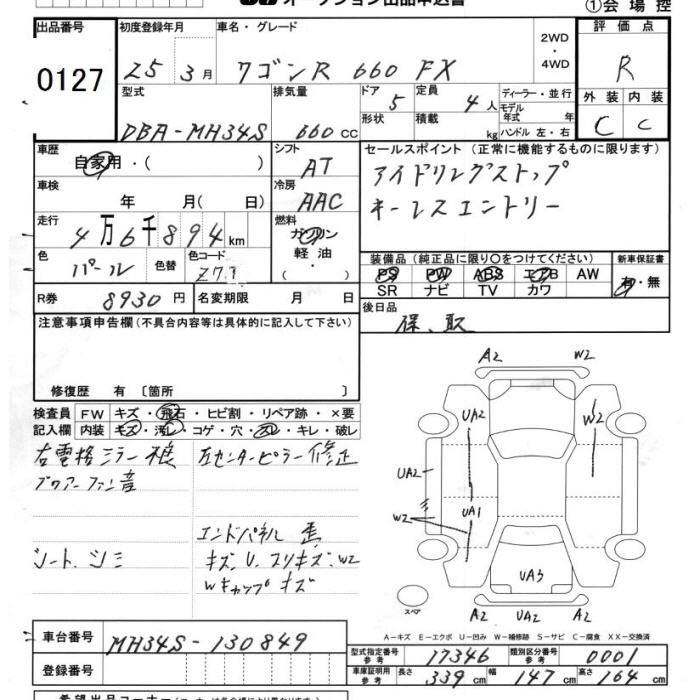 オークション出品申込書
①会場控
出品番号
初度登録年月
車名・グレード
評価点
0127
25 3月
ワゴンR 660 FX
2WD
・
4WD
R
型式
排気量
ドア
定員
ディーラー・並行
外装 内装
DBA-MH34S
660 cc
5
4人
モデル年式 年
形状
積載
kg
ハンドル 左・右
C C
車歴
自家用・( )
シフト
AT
セールスポイント (正常に機能するものに限ります)
アイドリングストップ
キーレスエントリー
車検
年 月( 日)
冷房
AAC
走行
4万6千894km
燃料
ガソリン
軽油
・( )
色
パール
色替
色コード
Z7T
装備品 (純正品に限り○をつけてください)
新車保証書
PS PW ABS エアB AW
SR ナビ TV カワ
有・無
R券
8930円
名変期限 月 日
後日品
保、取
注意事項申告欄 (不具合内容等は具体的に記入して下さい)
修復歴 有 〔箇所 〕
検査員記入欄
FW キズ・飛石・ヒビ割・リペア跡・×要
内装 キズ・汚レ・コゲ・穴・スレ・キレ・破レ
右電格ミラー
左センターピラー修正
ブロアーファン音
エンドパネル
シート、シミ
キズ、U、スリキズ、W2
Wキャップキズ
A2 W2
UA2 W2
UA2
W2 UA1
UA3
A2 UA2 A2
スペア
A-キズ E-エクボ U-凹み W-補修跡 S-サビ C-腐食 XX-交換済
車台番号
MH34S-130849
登録番号
型式指定番号 参考
17346
類別区分番号 参考
0001
車庫証明用 参考
長さ 339cm 幅 147cm 高さ 164cm